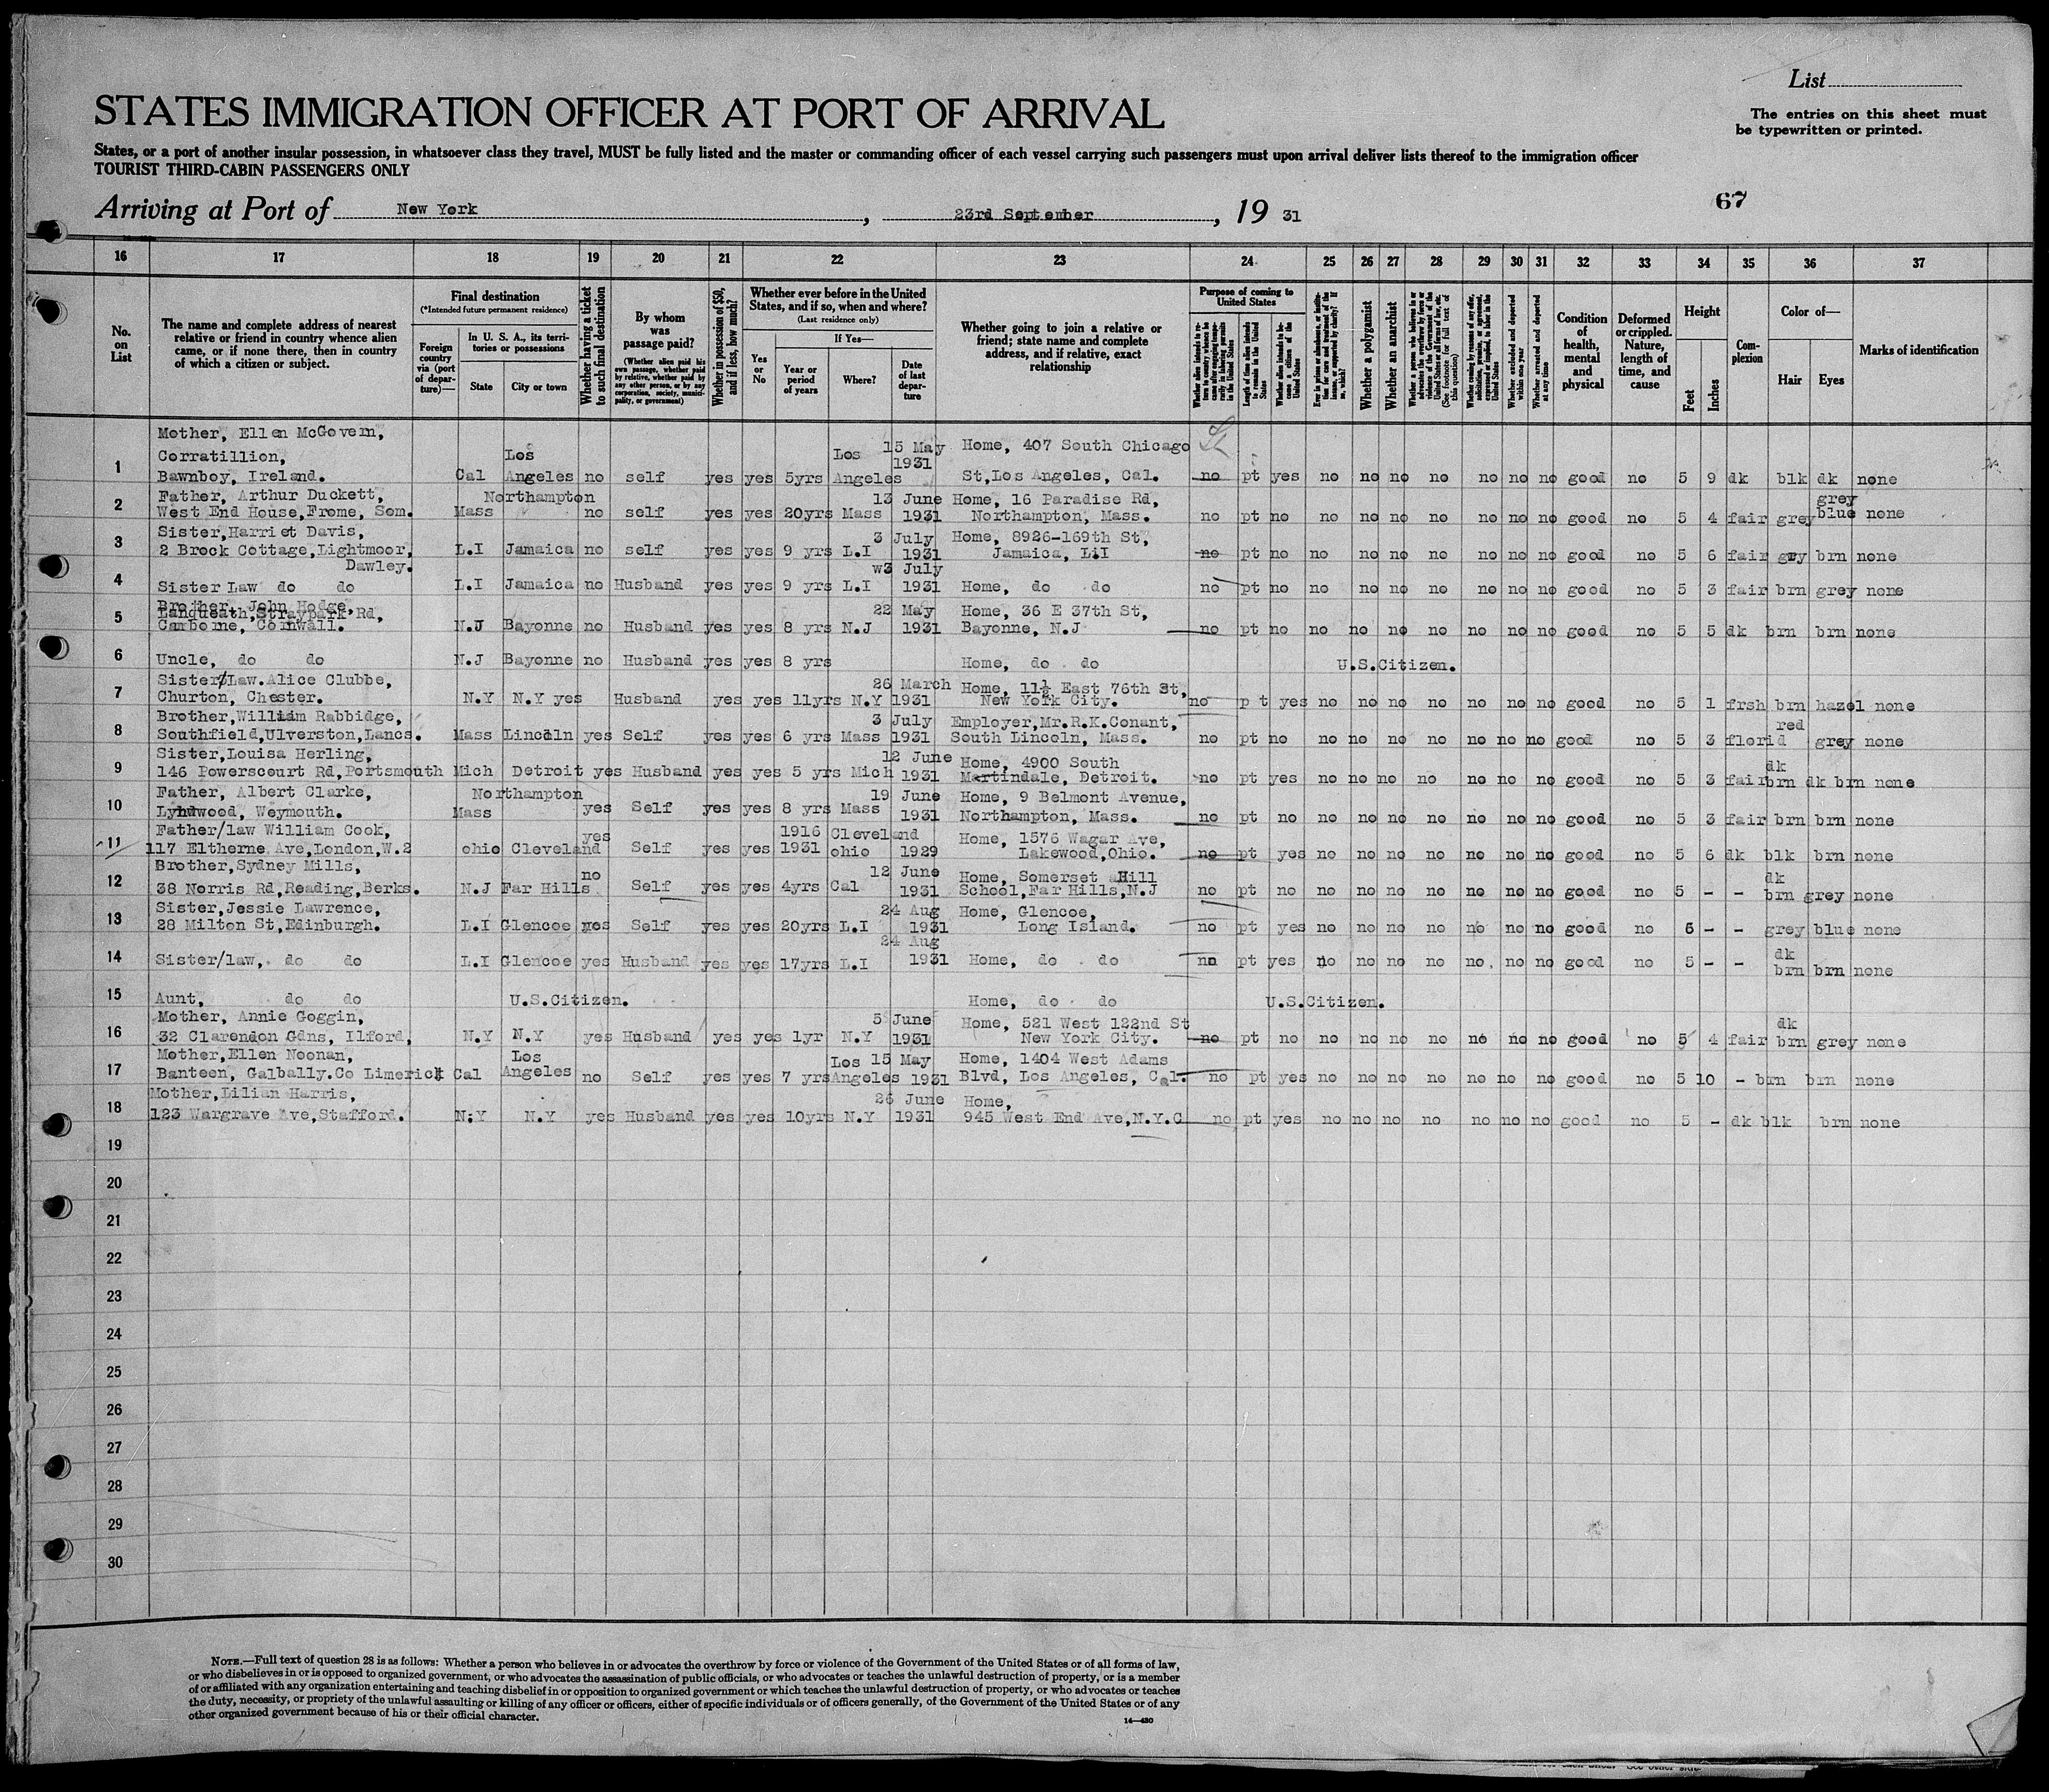 List
The entries on this sheet must
be typewritten or printed.
STATES IMMIGRATION OFFICER AT PORT OF ARRIVAL
States, or a port of another insular possession, in whatsoever class they travel, MUST be fully listed and the master or commanding officer of each vessel carrying such passengers must upon arrival deliver lists thereof to the immigration officer
TOURIST THIRD-CABIN PASSENGERS ONLY
67
Arriving at Port of New York, 23rd September, 19 31
16 17 18 19 20 21 22 23 24 25 26 27 28 29 30 31 32 33 34 35 36 37
No. on List
The name and complete address of nearest
relative or friend in country whence alien
came, or if none there, then in country
of which a citizen or subject.
Final destination
(*Intended future permanent residence)
Foreign country via (port of departure)—
In U. S. A., its territories or possessions
State City or town
Whether having a ticket to such final destination
By whom was passage paid?
(Whether alien paid his own passage, whether paid by relative, whether paid by any other person, or by any corporation, society, municipality, or government)
Whether in possession of $50, and if less, how much?
Whether ever before in the United States, and if so, when and where?
(Last residence only)
Yes or No
If Yes—
Year or period of years
Where?
Date of last departure
Whether going to join a relative or
friend; state name and complete
address, and if relative, exact
relationship
Purpose of coming to United States
Length of time alien intends to remain in the United States
Whether alien intends to become a citizen of the United States
Whether a polygamist
Whether an anarchist
Whether excluded and deported within one year
Whether arrested and deported at any time
Condition of health, mental and physical
Deformed or crippled. Nature, length of time, and cause
Height
Feet Inches
Complexion
Color of—
Hair Eyes
Marks of identification
Mother, Ellen McGovern,
Corratillion, Los Los 15 May Home, 407 South Chicago
1 Bawnboy, Ireland. Cal Angeles no self yes yes 5yrs Angeles 1931 St,Los Angeles, Cal. no pt yes no no no no no no no good no 5 9 dk blk dk none
Father, Arthur Duckett, Northampton 13 June Home, 16 Paradise Rd, grey
2 West End House,Frome, Som. Mass no self yes yes 20yrs Mass 1931 Northampton, Mass. no pt no no no no no no no no good no 5 4 fair grey blue none
Sister,Harriet Davis, 3 July Home, 8926-169th St,
3 2 Brock Cottage,Lightmoor, L.I Jamaica no self yes yes 9 yrs L.I 1931 Jamaica, LiI no pt no no no no no no no no good no 5 6 fair gry brn none
Dawley. w3 July
4 Sister Law do do L.I Jamaica no Husband yes yes 9 yrs L.I 1931 Home, do do no pt no no no no no no no no good no 5 3 fair brn grey none
Brother, John Hodge,
Langueath,Straypark Rd, 22 May Home, 36 E 37th St,
5 Carborne, Cornwall. N.J Bayonne no Husband yes yes 8 yrs N.J 1931 Bayonne, N.J no pt no no no no no no no no good no 5 5 dk brn brn none
6 Uncle, do do N.J Bayonne no Husband yes yes 8 yrs Home, do do U.S.Citizen.
Sister/Law.Alice Clubbe, 26 March Home, 11½ East 76th St,
7 Churton, Chester. N.Y N.Y yes Husband yes yes 11yrs N.Y 1931 New York City. no pt yes no no no no no no no good no 5 1 frsh brn hazel none
Brother,William Rabbidge, 3 July Employer,Mr.R.K.Conant, red
8 Southfield,Ulverston,Lancs. Mass Lincoln yes Self yes yes 6 yrs Mass 1931 South Lincoln, Mass. no pt no no no no no no no no good no 5 3 florid grey none
Sister,Louisa Herling, 12 June Home, 4900 South dk
9 146 Powerscourt Rd,Portsmouth Mich Detroit yes Husband yes yes 5 yrs Mich 1931 Martindale, Detroit. no pt yes no no no no no no no good no 5 3 fair brn dk brn none
Father, Albert Clarke, Northampton 19 June Home, 9 Belmont Avenue,
10 Lyndwood, Weymouth. Mass yes Self yes yes 8 yrs Mass 1931 Northampton, Mass. no pt no no no no no no no no good no 5 3 fair brn brn none
Father/law William Cook, yes 1916 Cleveland Home, 1576 Wagar Ave,
11 117 Eltherne Ave,London,W.2 ohio Cleveland Self yes yes 1931 ohio 1929 Lakewood,Ohio. no pt yes no no no no no no no good no 5 6 dk blk brn none
Brother,Sydney Mills, no 12 June Home, Somerset Hill dk
12 38 Norris Rd,Reading,Berks. N.J Far Hills Self yes yes 4yrs Cal 1931 School,Far Hills,N.J no pt no no no no no no no no good no 5 - - brn grey none
Sister,Jessie Lawrence, 24 Aug Home, Glencoe,
13 28 Milton St,Edinburgh. L.I Glencoe yes Self yes yes 20yrs L.I 1931 Long Island. no pt yes no no no no no no no good no 6 - - grey blue none
24 Aug dk
14 Sister/law, do do L.I Glencoe yes Husband yes yes 17yrs L.I 1931 Home, do do no pt yes no no no no no no no good no 5 - - brn brn none
15 Aunt, do do U.S.Citizen. Home, do do U.S.Citizen.
Mother, Annie Goggin, 5 June Home, 521 West 122nd St dk
16 32 Clarendon Gdns, Ilford, N.Y N.Y yes Husband yes yes 1yr N.Y 1931 New York City. no pt no no no no no no no no good no 5 4 fair brn grey none
Mother,Ellen Noonan, Los Los 15 May Home, 1404 West Adams
17 Banteen, Galbally.Co Limerick Cal Angeles no Self yes yes 7 yrs Angeles 1931 Blvd, Los Angeles, Cal. no pt yes no no no no no no no good no 5 10 - brn brn none
Mother,Lilian Harris, 26 June Home,
18 123 Wargrave Ave,Stafford. N.Y N.Y yes Husband yes yes 10yrs N.Y 1931 945 West End Ave,N.Y.C no pt yes no no no no no no no good no 5 - dk blk brn none
19
20
21
22
23
24
25
26
27
28
29
30
NOTE.—Full text of question 28 is as follows: Whether a person who believes in or advocates the overthrow by force or violence of the Government of the United States or of all forms of law,
or who disbelieves in or is opposed to organized government, or who advocates the assassination of public officials, or who advocates or teaches the unlawful destruction of property, or is a member
of or affiliated with any organization entertaining and teaching disbelief in or opposition to organized government or which teaches the unlawful destruction of property, or who advocates or teaches
the duty, necessity, or propriety of the unlawful assaulting or killing of any officer or officers, either of specific individuals or of officers generally, of the Government of the United States or of any
other organized government because of his or their official character.
14—430